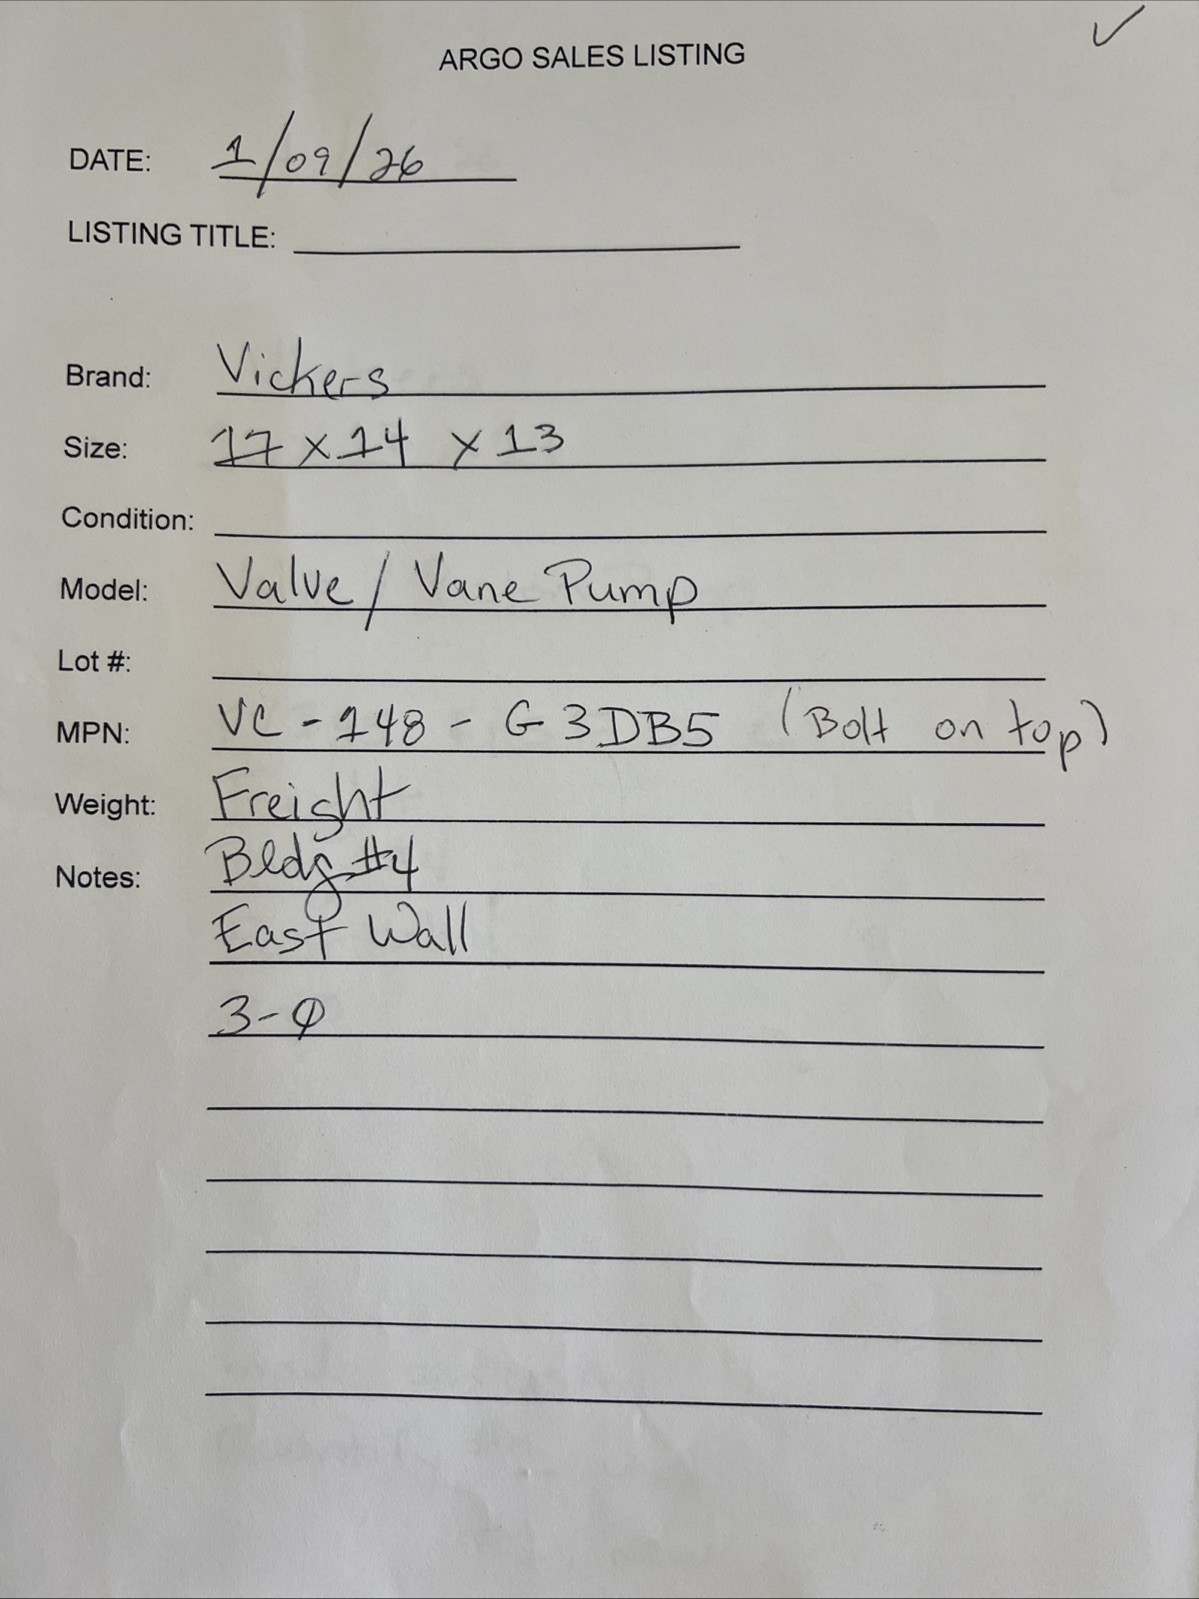 ARGO SALES LISTING
DATE: 1/09/26
LISTING TITLE:
Brand: Vickers
Size: 17 x 14 x 13
Condition:
Model: Valve / Vane Pump
Lot #:
MPN: VC - 148 - G3DB5 (Bolt on top)
Weight: Freight
Notes: Bldg #4
East Wall
3-0